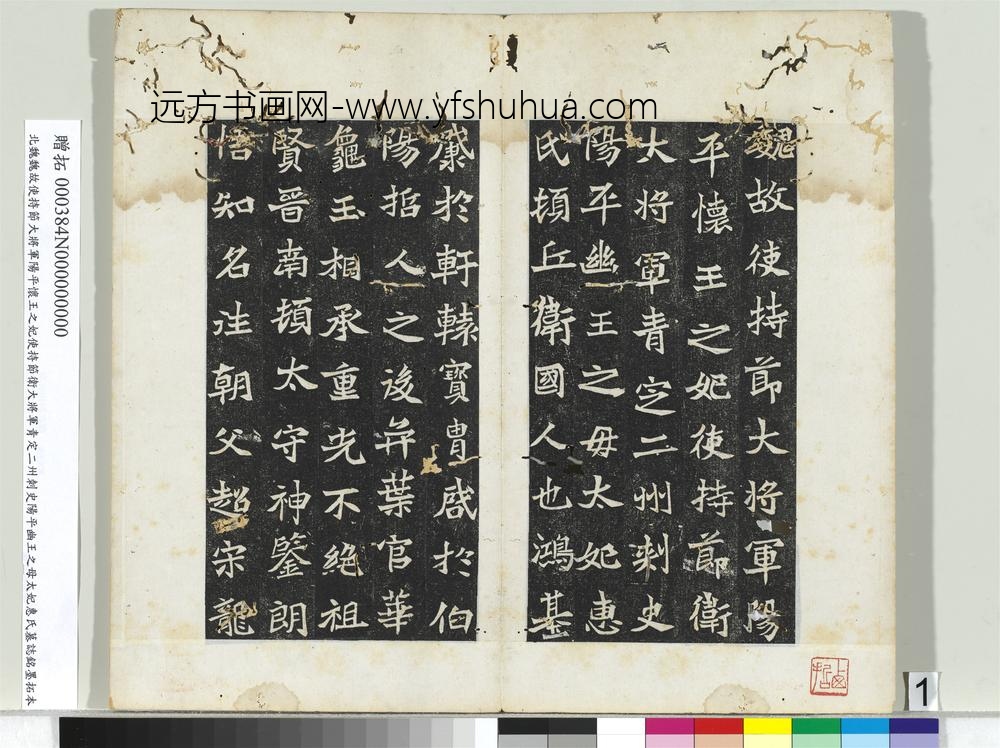 远方书画网-www.yfshuhua.com
魏故使持節大將軍陽
平懷王之妃使持節衛
大將軍青定二州刺史
陽平幽王之母太妃惠
氏頓丘衛國人也鴻基
於軒轅寶胄啟於伯
陽招人之後弈葉官華
龜玉相承重光不絕祖
賢晉南頓太守神鑒朗
悟知名注朝父超宗龍
贈拓 000384N000000000
北魏魏故使持節大將軍陽平懷王之妃使持節衛大將軍青定二州刺史陽平幽王之母太妃惠氏墓誌銘墨拓本
1